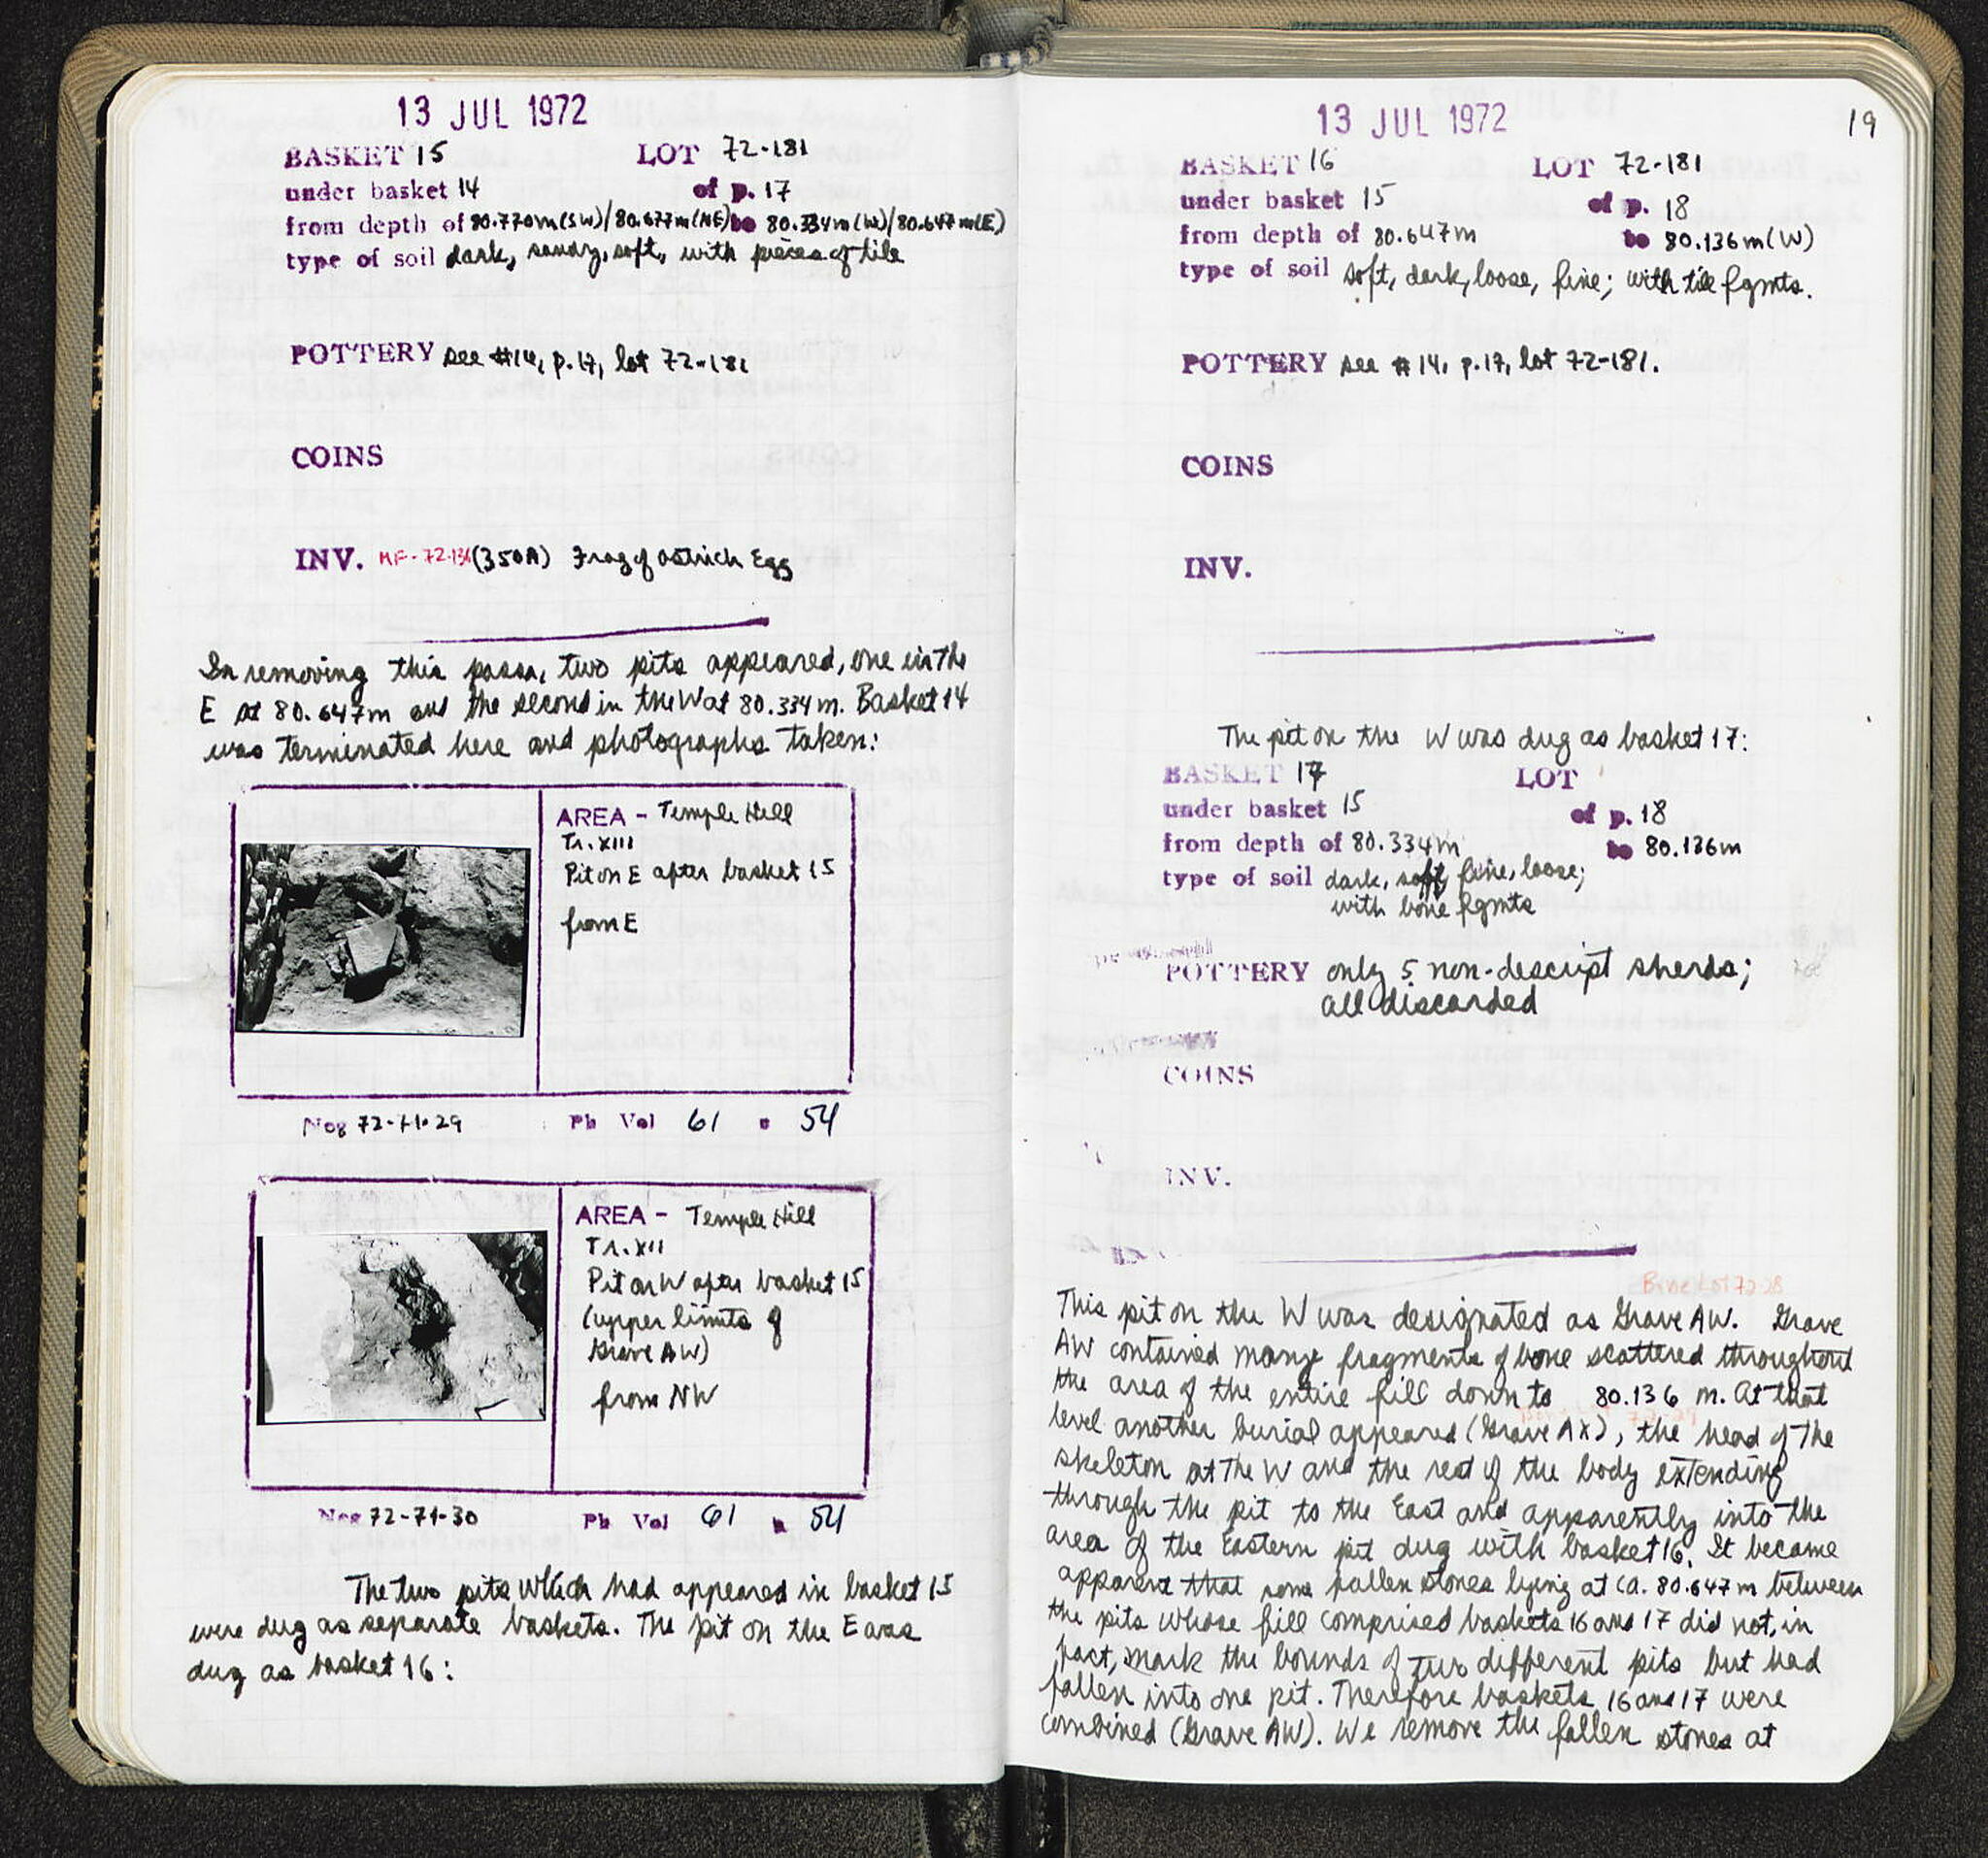 13 JUL 1972
BASKET 15 LOT 72-181
under basket 14 of p. 17
from depth of 80.770m(SW)/80.677m(NE) to 80.334m(W)/80.647m(E)
type of soil dark, sandy, soft, with pieces of tile
POTTERY see #14, p.17, lot 72-181
COINS
INV. MF-72-136 (350A) Frag of Ostrich Egg
In removing this passa, two pits appeared, one in the
E at 80.647m and the second in the W at 80.334m. Basket 14
was terminated here and photographs taken:
AREA - Temple Hill
Tr. XIII
Pit on E after basket 15
from E
Neg 72-71-29 Ph Vol 61 p 54
AREA - Temple Hill
Tr. XII
Pit on W after basket 15
(upper limits of
Grave AW)
from NW
Neg 72-71-30 Ph Vol 61 p 54
The two pits which had appeared in basket 15
were dug as separate baskets. The pit on the E was
dug as basket 16:
13 JUL 1972 19
BASKET 16 LOT 72-181
under basket 15 of p. 18
from depth of 80.647m to 80.136m(W)
type of soil soft, dark, loose, fine; with tile fgmts.
POTTERY see #14, p.17, lot 72-181.
COINS
INV.
The pit on the W was dug as basket 17:
BASKET 17 LOT
under basket 15 of p. 18
from depth of 80.334m to 80.136m
type of soil dark, soft, fine, loose;
with bone fgmts
POTTERY only 5 non-descript sherds;
all discarded
COINS
INV.
Bone Lot 72-28
This pit on the W was designated as Grave AW. Grave
AW contained many fragments of bone scattered throughout
the area of the entire fill down to 80.136 m. At that
level another burial appeared (Grave AX), the head of the
skeleton at the W and the rest of the body extending
through the pit to the East and apparently into the
area of the Eastern pit dug with basket 16. It became
apparent that some fallen stones lying at ca. 80.647m between
the pits whose fill comprised baskets 16 and 17 did not, in
fact, mark the bounds of two different pits but had
fallen into one pit. Therefore baskets 16 and 17 were
combined (Grave AW). We remove the fallen stones at